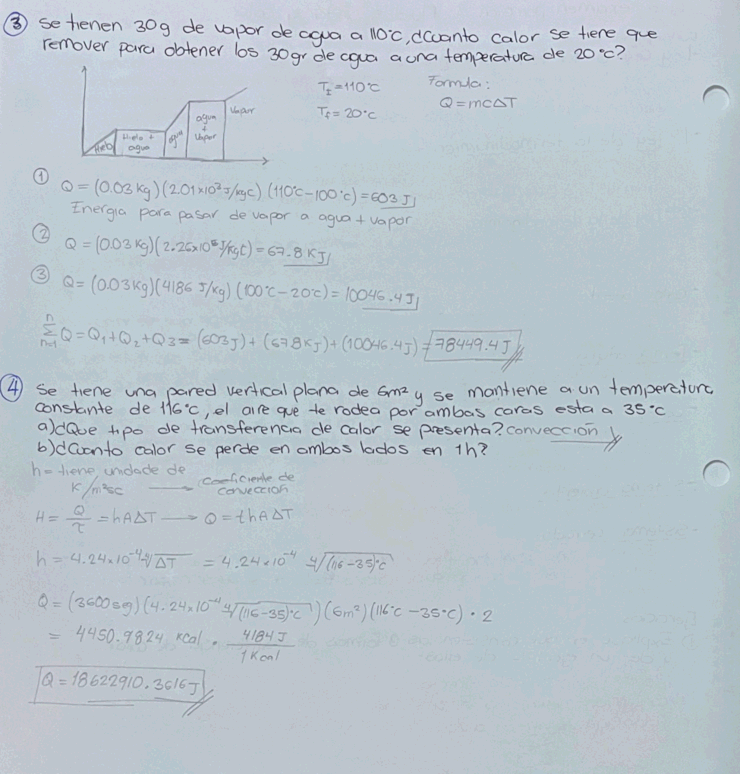 ③ Se tienen 30g de vapor de agua a 110°C, ¿cuanto calor se tiene que
remover para obtener los 30gr de agua a una temperatura de 20°C?
Hielo
Hielo +
agua
agua
agua
+
Vapor
Vapor
Ti = 110°C
Tf = 20°C
Formula:
Q = mcΔT
① Q = (0.03 kg)(2.01x10³ J/kg°C)(110°C-100°C) = 603 J
Energia para pasar de vapor a agua + vapor
② Q = (0.03 kg)(2.26x10⁶ J/kg°C) = 67.8 KJ
③ Q = (0.03 kg)(4186 J/kg)(100°C-20°C) = 10046.4 J
n
Σ Q = Q₁ + Q₂ + Q₃ = (603 J) + (67.8 KJ) + (10046.4 J) = 78449.4 J
n=1
④ Se tiene una pared vertical plana de 6m² y se mantiene a un temperatura
constante de 116°C, el aire que te rodea por ambas caras esta a 35°C
a) ¿Que tipo de transferencia de calor se presenta? convección
b) ¿Cuanto calor se perde en ambos lados en 1h?
h = tiene unidade de
K/m²sc → Coeficiente de
convección
H = Q/τ = hAΔT → Q = thAΔT
h = 4.24x10⁻⁴ ⁴√ΔT = 4.24x10⁻⁴ ⁴√(116-35)°C
Q = (3600 seg)(4.24x10⁻⁴ ⁴√(116-35)°C)(6m²)(116°C - 35°C) · 2
= 4450.9824 Kcal · 4184 J
1 Kcal
Q = 18622910.3616 J